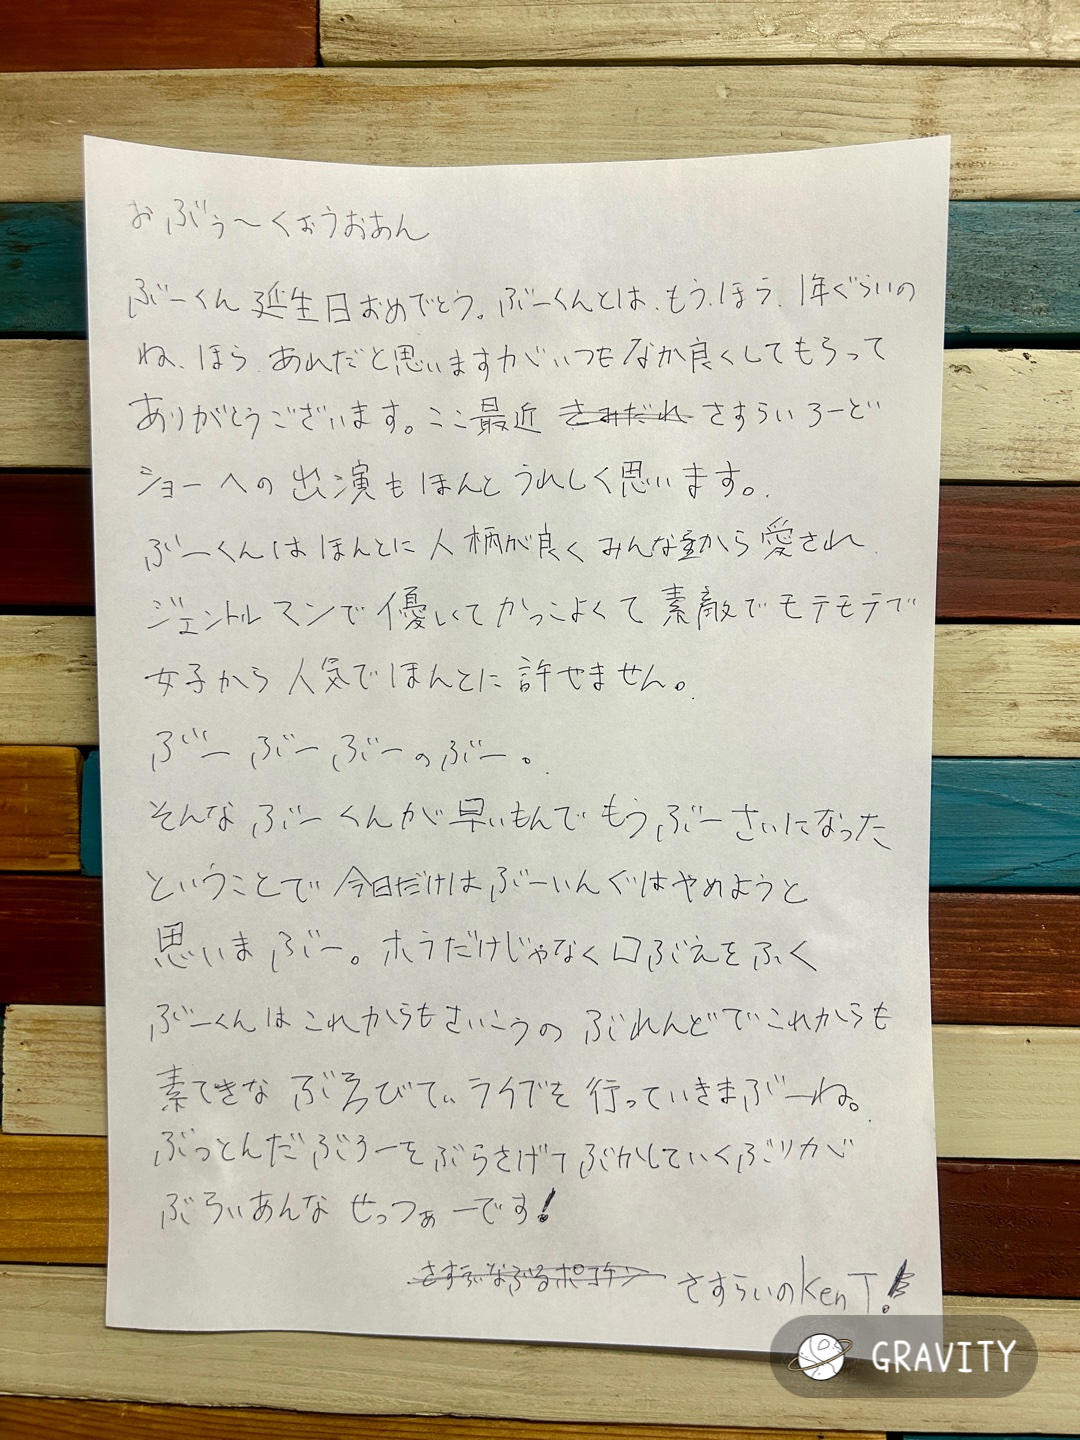 おぶぅ〜くぉうおあん
ぶーくん 延生日おめでとう。ぶーくんとは、もう、ほう、1年ぐらいの
ね、ほら、あれだと思いますがいつもなか良くしてもらって
ありがとうございます。ここ最近 さみだれ さすらいろーど
ショーへの出演もほんとうれしく思います。
ぶーくんはほんとに人柄が良くみんなから愛され
ジェントルマンで優いてかっこよくて素敵でモテモテで
女子から人気でほんとに許せません。
ぶー ぶー ぶーのぶー。
そんなぶーくんが早いもんでもうぶーさいになった
ということで今日だけはぶーいんぐはやめようと
思いまぶー。ホラだけじゃなく口ぶえをふく
ぶーくんはこれからもさいこうのぶれんどでこれからも
素てきなぶろびてぃライブを行っていきまぶーね。
ぶっとんだぶろーをぶらさげてぶかしていくぶりかぶ
ぶろぃあんな せっつぁーです!
さすらいのKen T!
GRAVITY